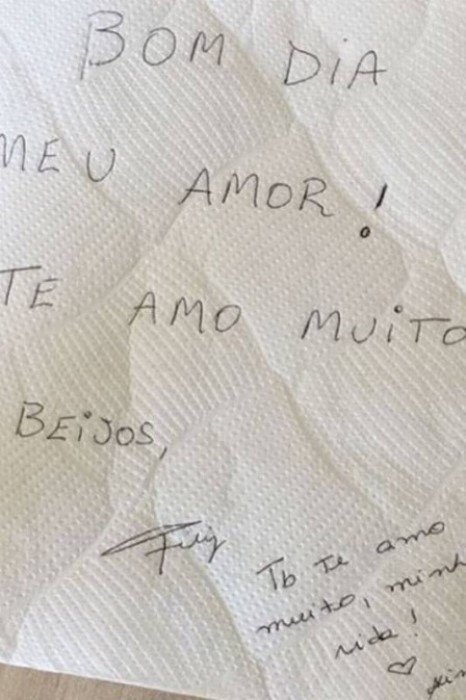 BOM DiA
MEU AMOR!
TE AMO MUiTO
BEiJOS,
Tb te amo
muito, minh
vida!